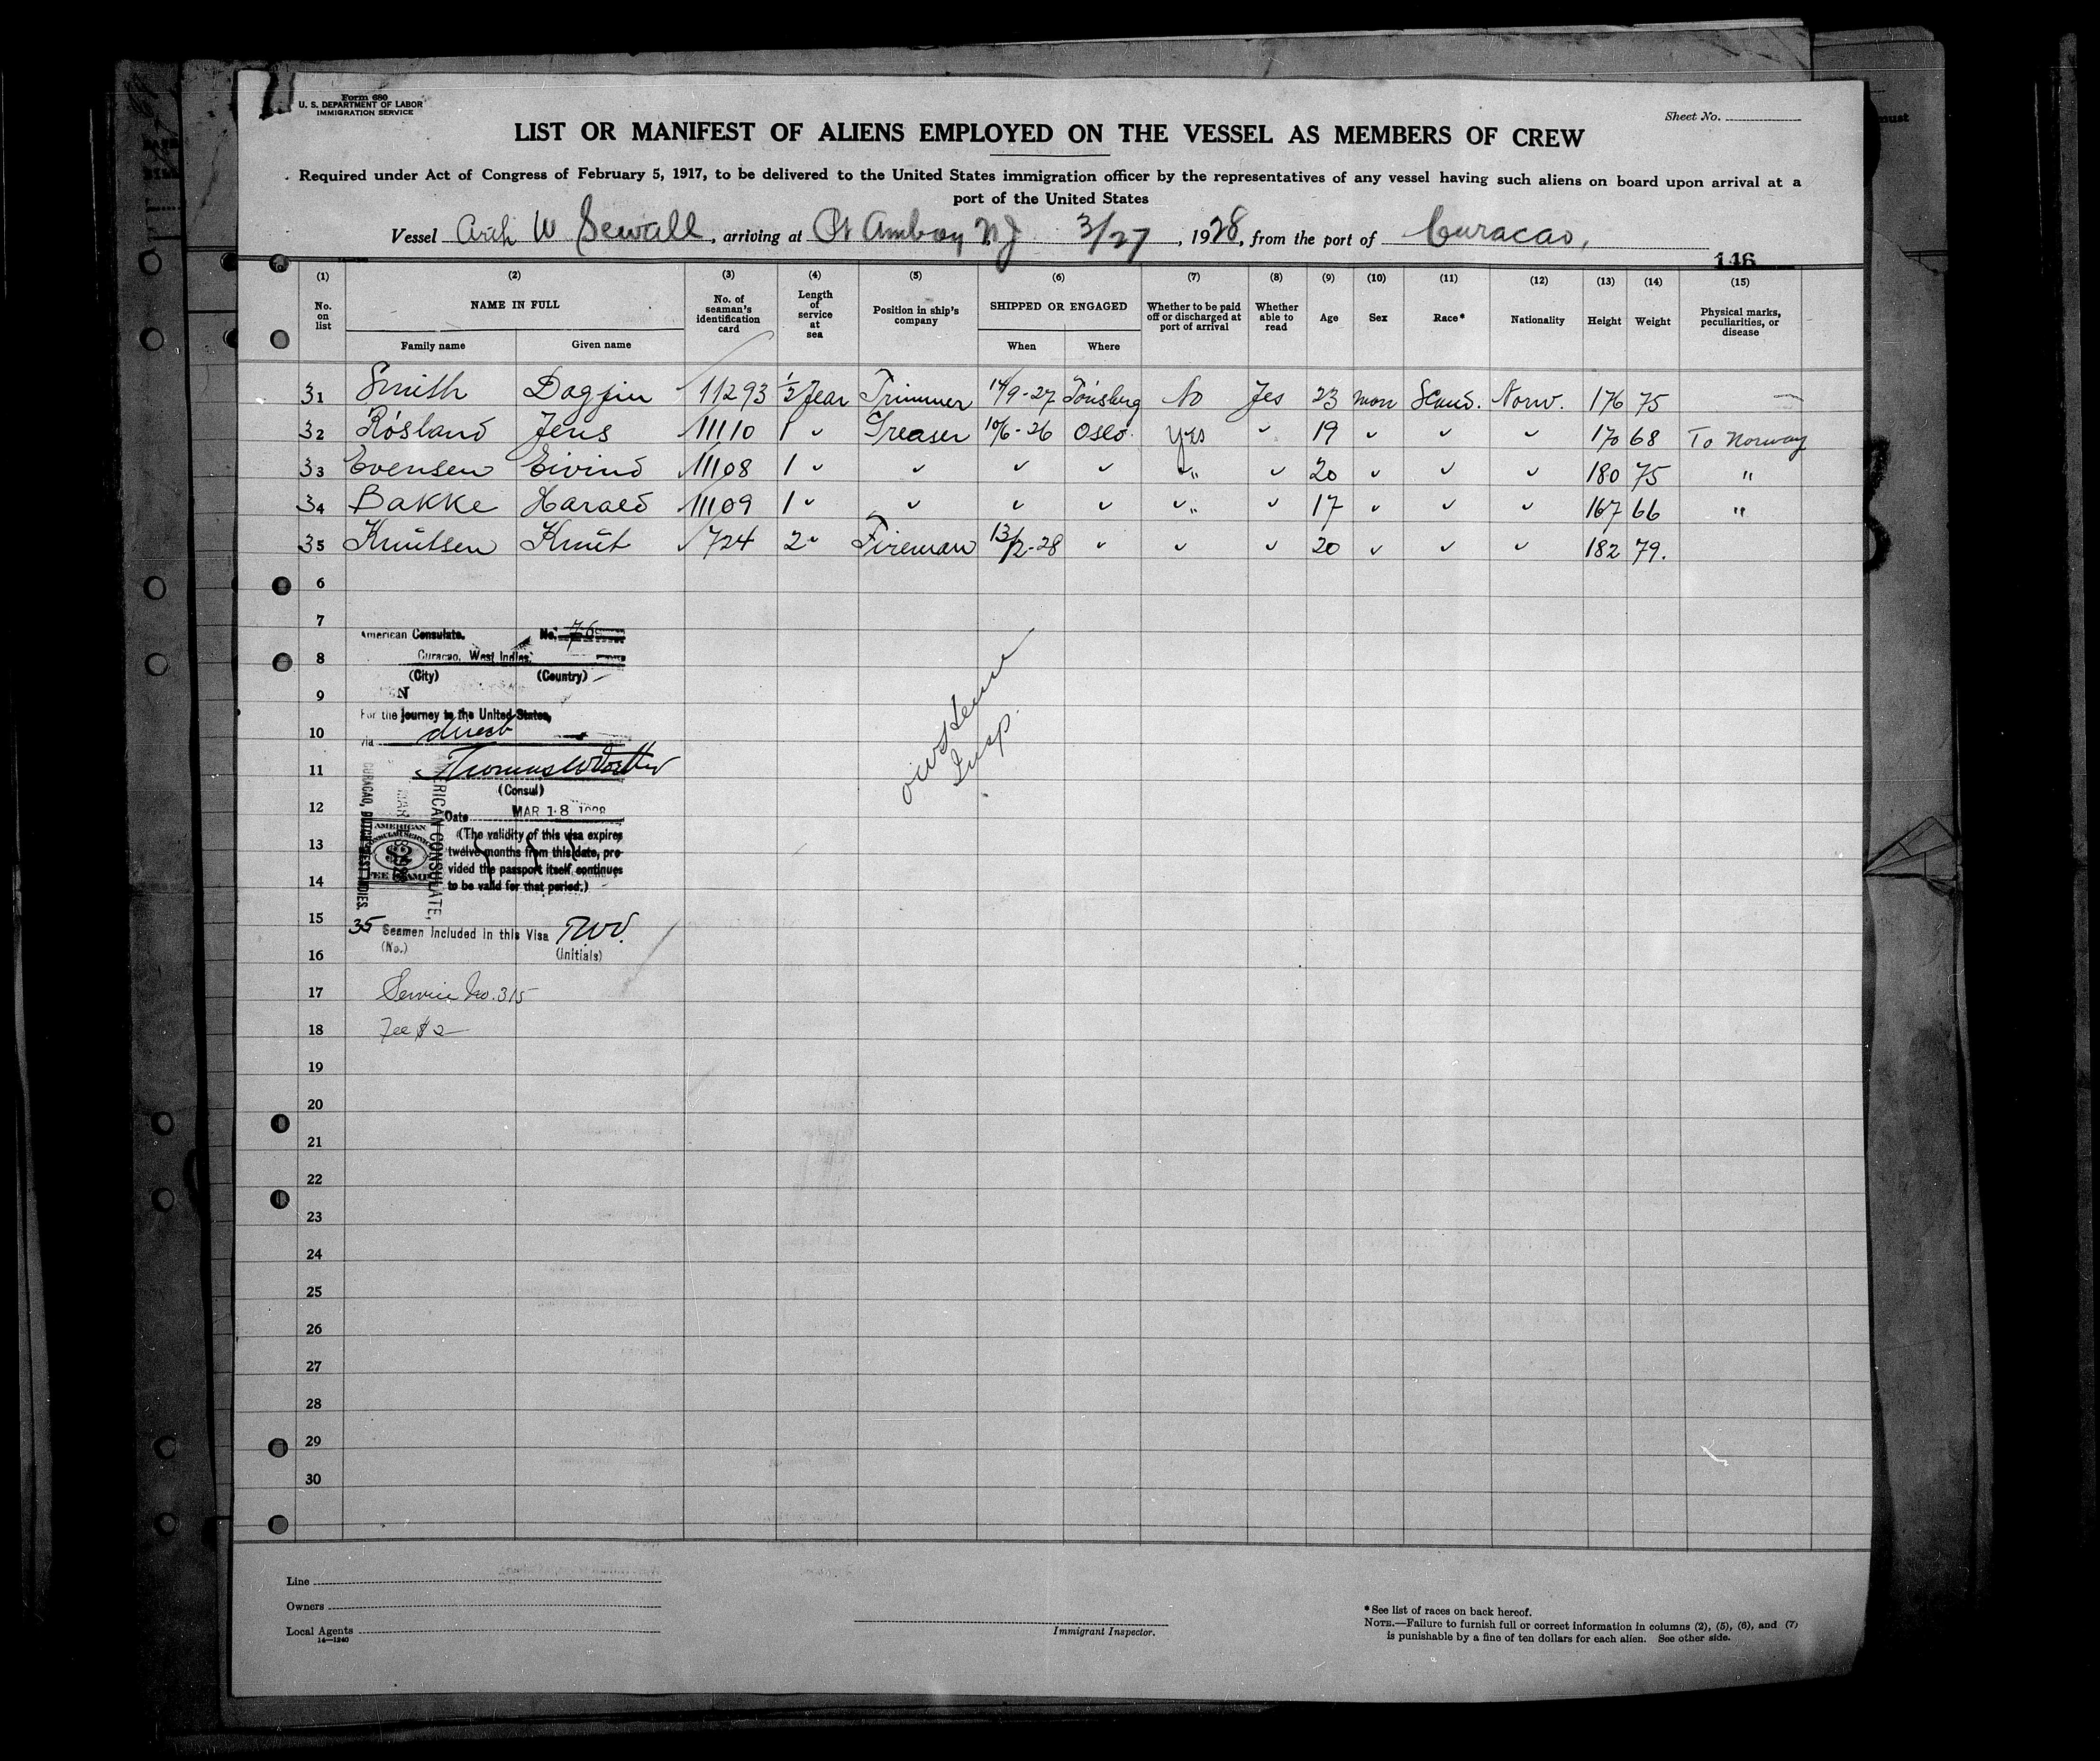 Form 680
U. S. DEPARTMENT OF LABOR
IMMIGRATION SERVICE
Sheet No.
LIST OR MANIFEST OF ALIENS EMPLOYED ON THE VESSEL AS MEMBERS OF CREW
Required under Act of Congress of February 5, 1917, to be delivered to the United States immigration officer by the representatives of any vessel having such aliens on board upon arrival at a
port of the United States
Vessel Arth W Sewall, arriving at Pt Amboy N.J 3/27, 1928, from the port of Curacao,
146
(1) (2) (3) (4) (5) (6) (7) (8) (9) (10) (11) (12) (13) (14) (15)
No. on list NAME IN FULL No. of seaman's identification card Length of service at sea Position in ship's company SHIPPED OR ENGAGED Whether to be paid off or discharged at port of arrival Whether able to read Age Sex Race* Nationality Height Weight Physical marks, peculiarities, or disease
Family name Given name When Where
31 Smith Dagfin 11293 1/2 Year Trimmer 14/9-27 Tönsberg No Yes 23 man Scand. Norw. 176 75 —
32 Rösland Jens 11110 1 " Greaser 10/6-26 Oslo. Yes " 19 " " " 170 68 To Norway
33 Evensen Eivind 11108 1 " " " " " " 20 " " " 180 75 "
34 Bakke Harald 11109 1 " " " " " " 17 " " " 167 66 "
35 Knutsen Knut 724 2 " Fireman 13/2-28 " " " 20 " " " 182 79.
6
7
American Consulate. No.
8
Curacao, West Indies.
(City) (Country)
9
For the journey to the United States,
10
via direct
11
(Consul)
12
Date MAR 18
13
(The validity of this visa expires
twelve months from this date, pro-
vided the passport itself continues
to be valid for that period.)
14
AMERICAN CONSULATE,
CURACAO, DUTCH WEST INDIES.
AMERICAN
CONSULAR SERVICE
$2
FEE STAMP
Insp.
15
35 Seamen Included in this Visa TWV.
(No.) (Initials)
16
17 Service No. 315
18 Fee $2—
19
20
21
22
23
24
25
26
27
28
29
30
Line
Owners
Local Agents
14—1240
Immigrant Inspector.
* See list of races on back hereof.
NOTE.—Failure to furnish full or correct information in columns (2), (5), (6), and (7)
is punishable by a fine of ten dollars for each alien. See other side.
must